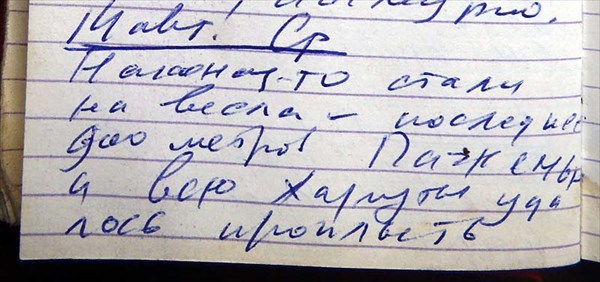 11 авг. Ср
Наконец-то стали
на весла – последние
900 метров
и всю Харуты уда
лось проплыть